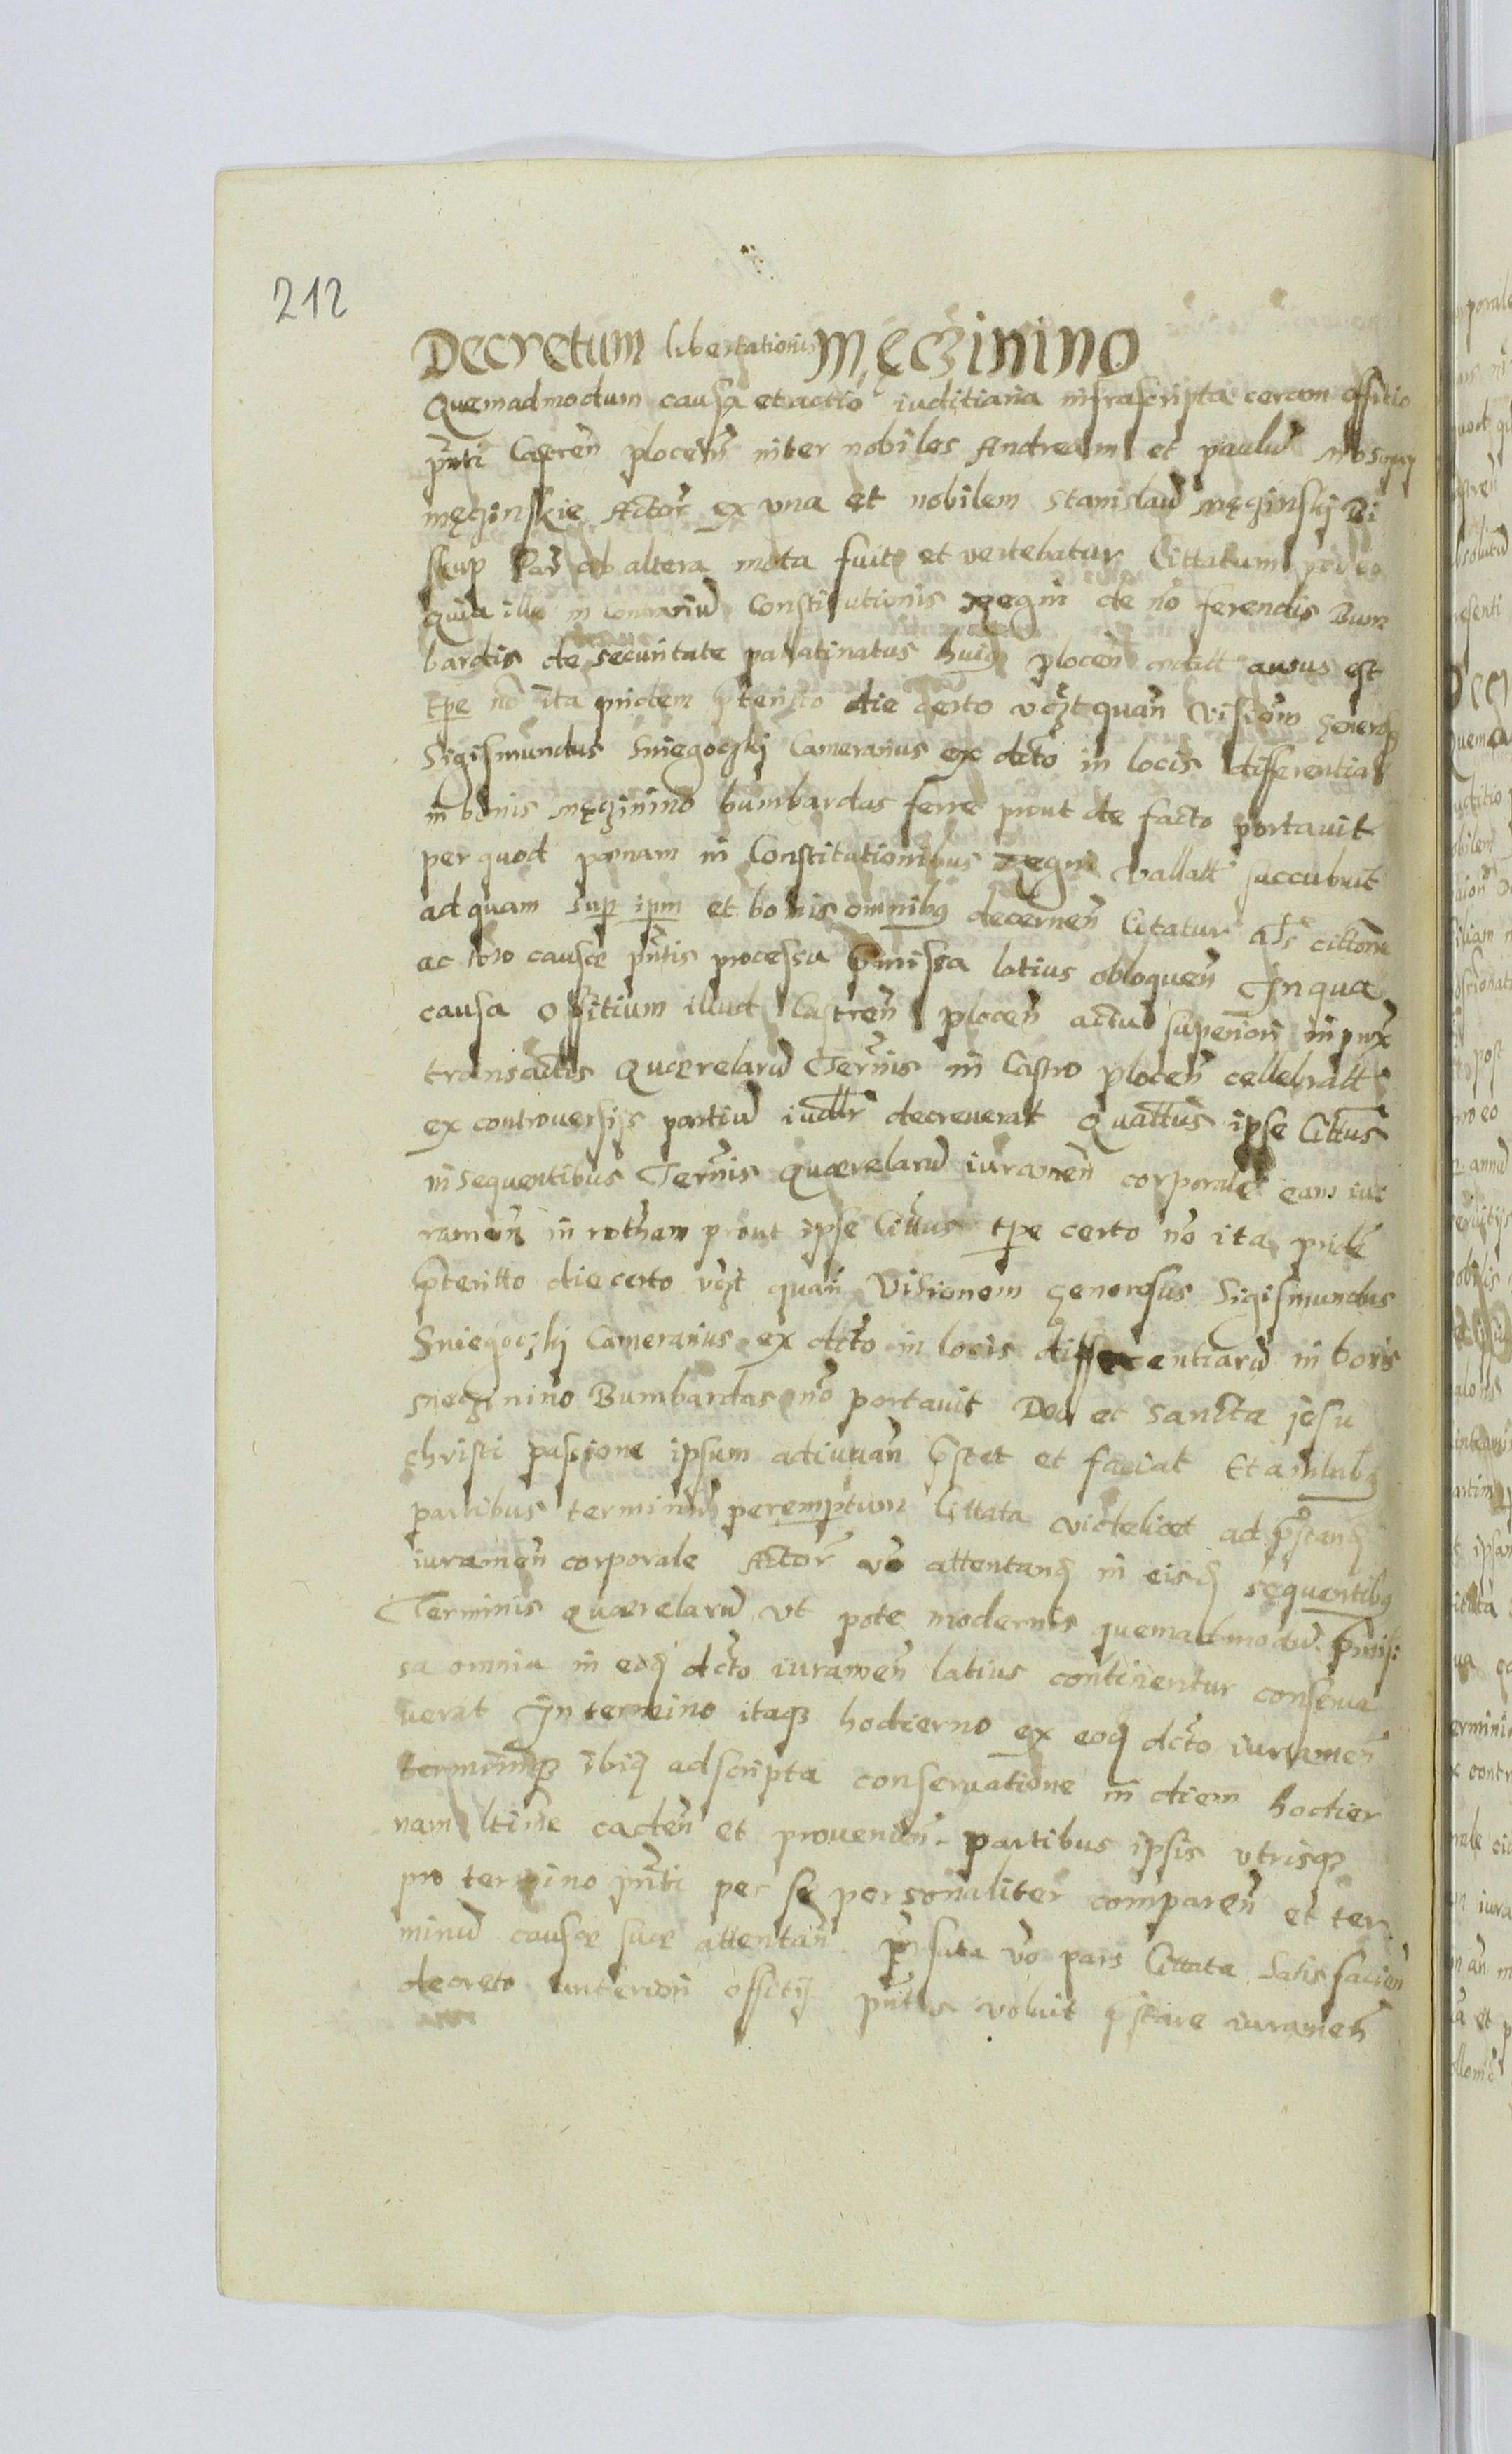 212
Decretum libertationis Męczinino
Quemadmodum causa et actio iuditiaria infrascripta coram officio
pnti Castren̄ plocen̄ inter nobiles Andream et paulū
męczinskie Actor̄ ex vna et nobilem Stanislaū męczinskj Bi
skup Par̄ ab altera mota fuit et vertebatur Cittatum pro eo
Quia ille in Contrariū Constitutionis Regni de nō ferendis Bum
bardis de securitate pallatinatus huiq plocen̄ ausus est
tpe nō ita pridem pteritto die certo vczt quan̄ visiom̄ generoſ
Sigismundus Sniegoczkj Camerarius ex dcto in locis differentiar̄
in bonis męczinino bumbardas ferre prout de facto portauit
per quod pœnam in Constitutionibus Regni vallatt succubuit
ad quam sup ipm et bonis omnibq decernen̄ Citatur cittone
ac toto causæ pntis processu pmissa latius obloquen̄ In qua
causa Offitium illud Castren̄ plocen̄ actū superiori in prox
transactis Quærelarū Terminis in Castro plocen̄ cellebratt
ex controuersijs partiū iudllr decreuerat Quattus ipse Cittus
in sequentibus Terminis Quærelarū iuramen̄ corporale eam iu
ramen̄ in rotham prout ipse Cittus tpe certo nō ita pridē
pteritto die certo vczt quan̄ Visionem generosus Sigismundus
Sniegoczkj Camerarius ex dcto in locis differentiarū in bonis
męczinino Bumbardas nō portauit Deo et sancta jesu
christi passione ipsum adiuuan̄ pstet et faciat Et ambabq
partibus terminū peremptum Cittata videlicet ad pstanḍ
iuramen̄ corporale Actor̄ vō attentanḍ in eisḍ sequentibq
Terminis Quærelarū vt pote modernis quemadmodū pmis:
sa omnia in eoḍ dcto iuramen̄ latius continentur conserua
uerat In termino itaqз hodierno ex eoḍ dcto iuramen̄
terminiqз ibiḍ adscripta conseruatione in diem hodier
nam ltime caden̄ et prouenien̄ partibus ipsis vtrisqз
pro termino pnti per se personaliter comparen̄ et ter
minū causæ suæ attentan̄ vō pars Cittata satisfacien̄
decreto anteriori offitij pntis voluit pstare iuramen̄